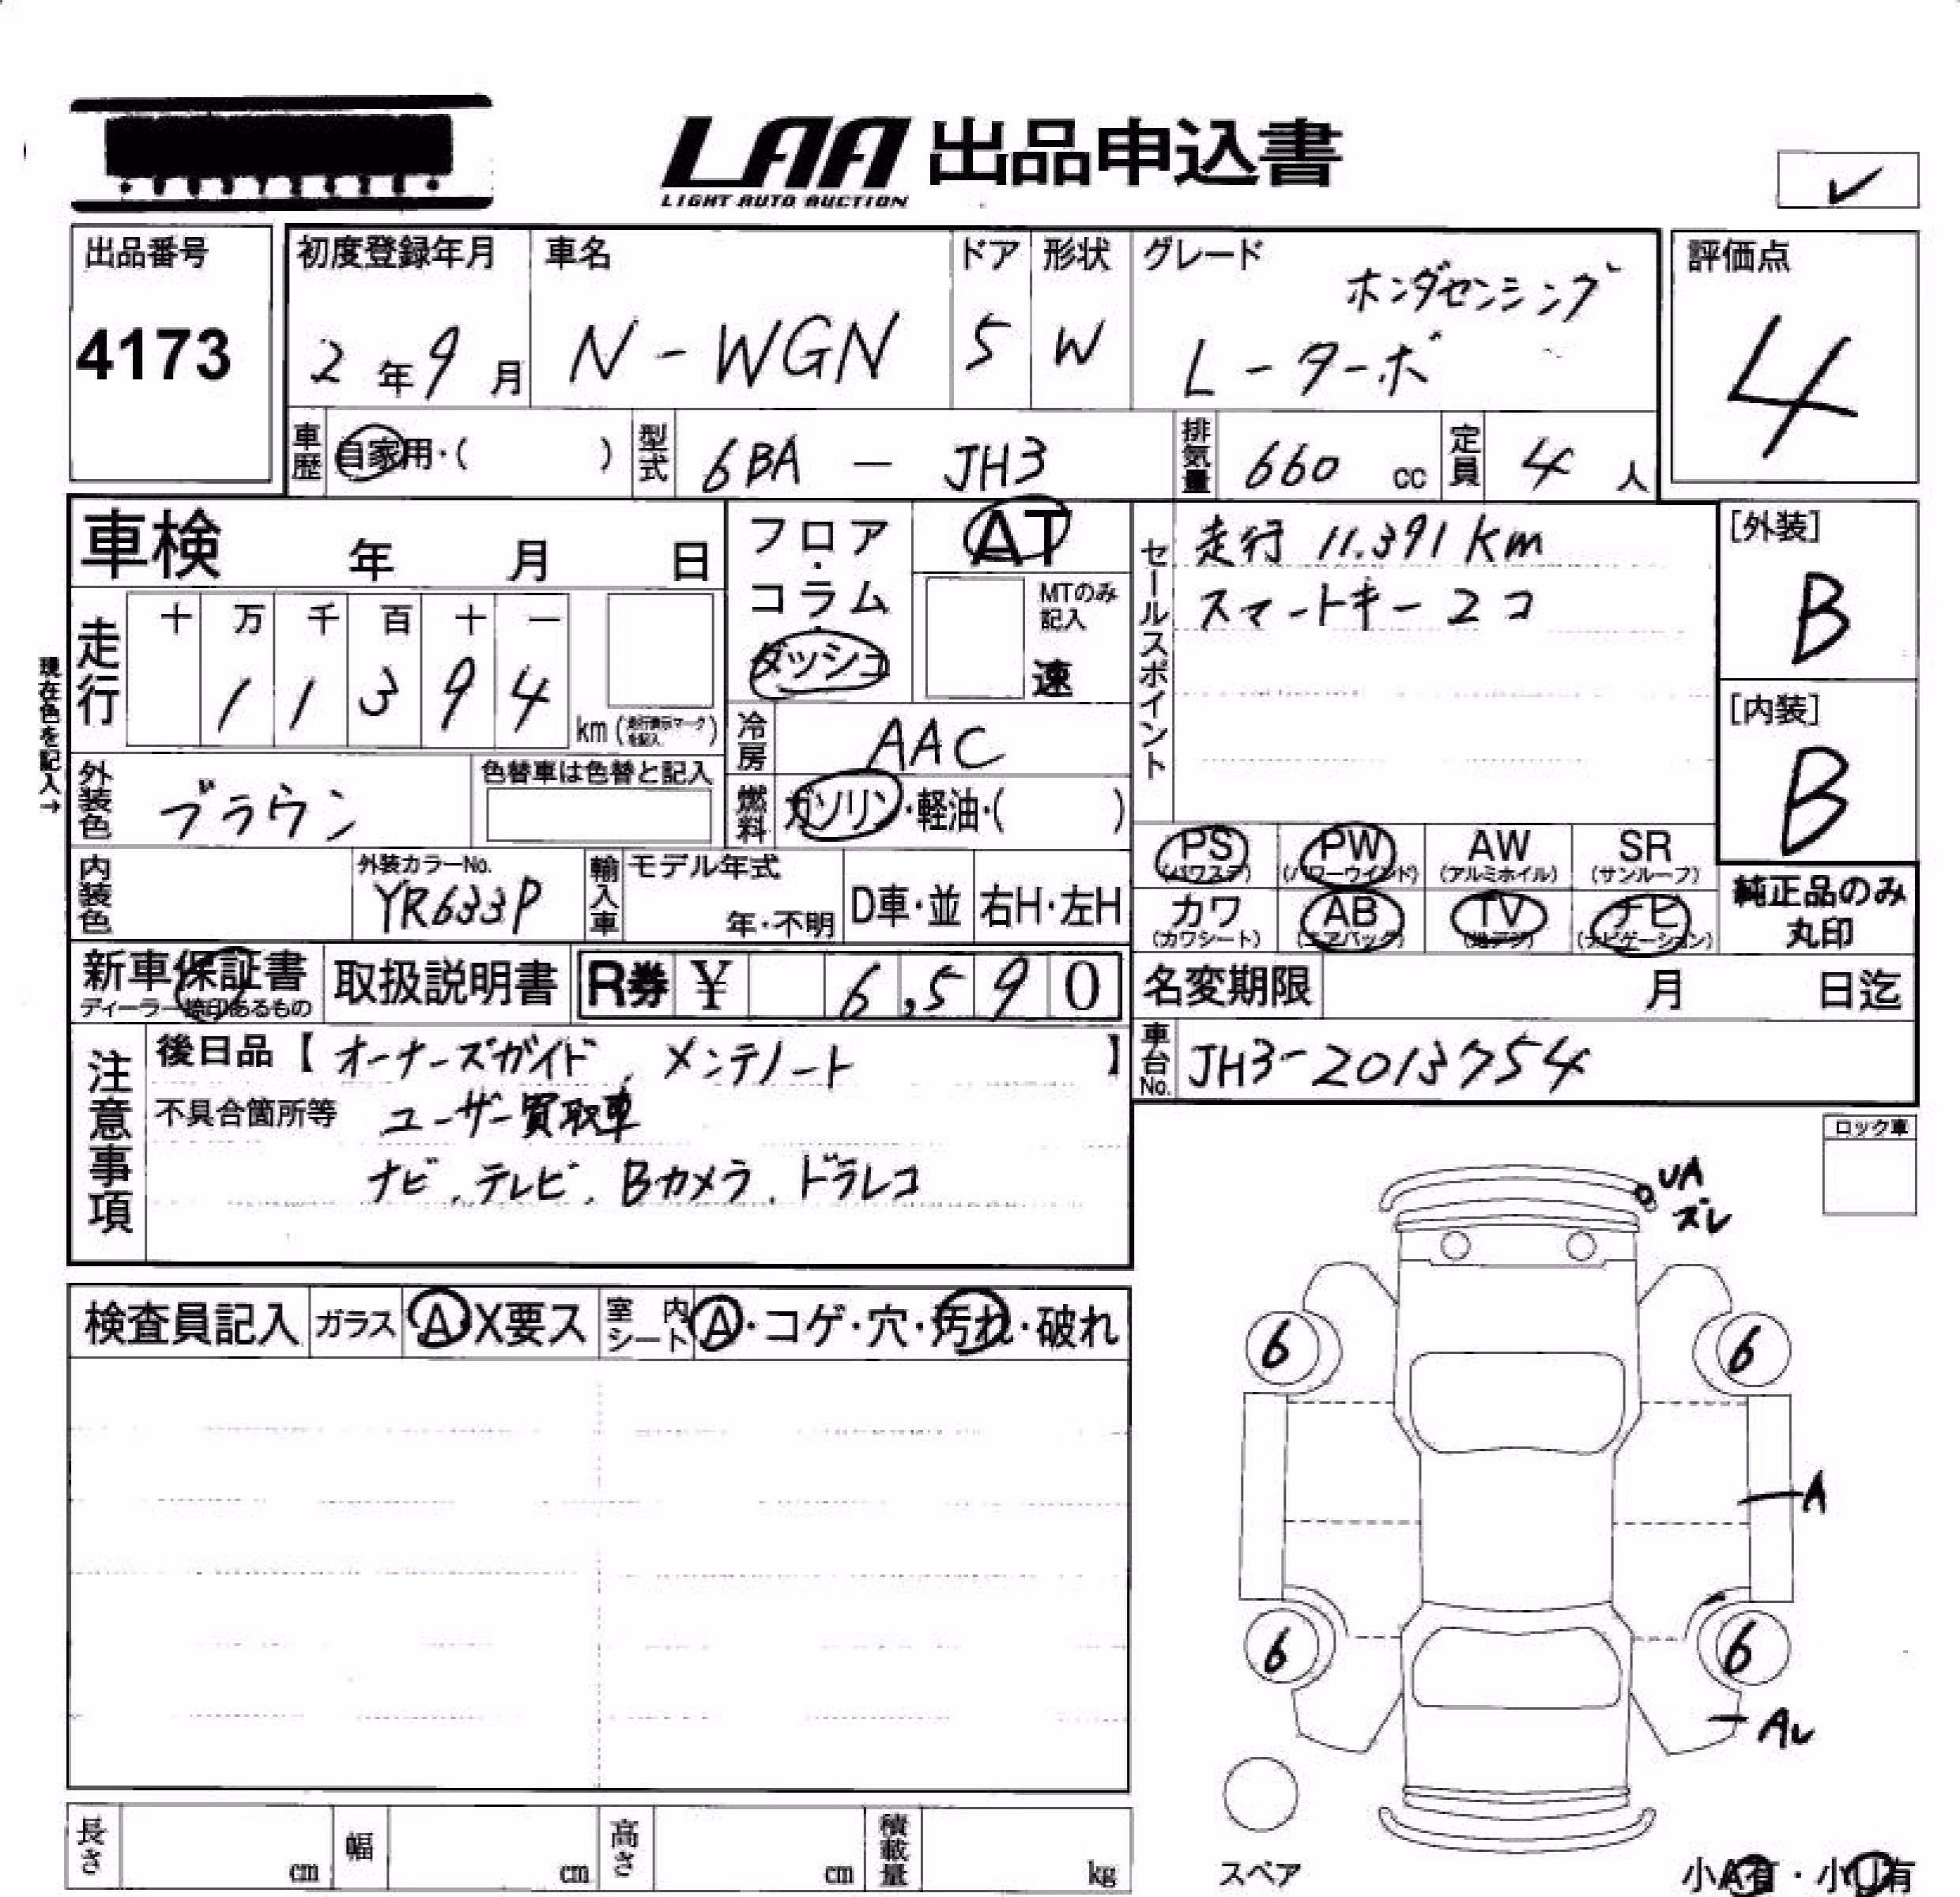 LAA 出品申込書
LIGHT AUTO AUCTION
✓
出品番号
4173
初度登録年月
2年9月
車名
N-WGN
ドア
5
形状
W
グレード
ホンダセンシング
L-ターボ
評価点
4
車歴
自家用・( )
型式
6BA - JH3
排気量
660 cc
定員
4 人
車検 年 月 日
走行
十 万 千 百 十 一
1 1 3 9 4
km (走行表示マークを記入)
現在色を記入→
フロア・コラム・ダッシュ
AT
MTのみ記入
速
冷房
AAC
燃料
ガソリン・軽油・( )
セールスポイント
走行 11.391km
スマートキー 2コ
[外装]
B
[内装]
B
外装色
ブラウン
色替車は色替と記入
内装色
外装カラーNo.
YR633P
輸入車
モデル年式
年・不明
D車・並
右H・左H
PS
(パワステ)
PW
(パワーウインド)
AW
(アルミホイル)
SR
(サンルーフ)
カワ
(カワシート)
AB
(エアバック)
TV
(地デジ)
ナビ
(ナビゲーション)
純正品のみ
丸印
新車保証書
ディーラー捺印あるもの
取扱説明書
R券 ¥ 6,590
名変期限 月 日迄
車台No.
JH3-2013754
注意事項
後日品【オーナーズガイド、メンテノート】
不具合箇所等 ユーザー買取車
ナビ、テレビ、Bカメラ、ドラレコ
ロック車
UA
ズレ
検査員記入
ガラス
A X要ス
室内シート
A・コゲ・穴・汚れ・破れ
6
6
A
6
6
スペア
長さ cm
幅 cm
高さ cm
積載量 kg
小A有・小U有